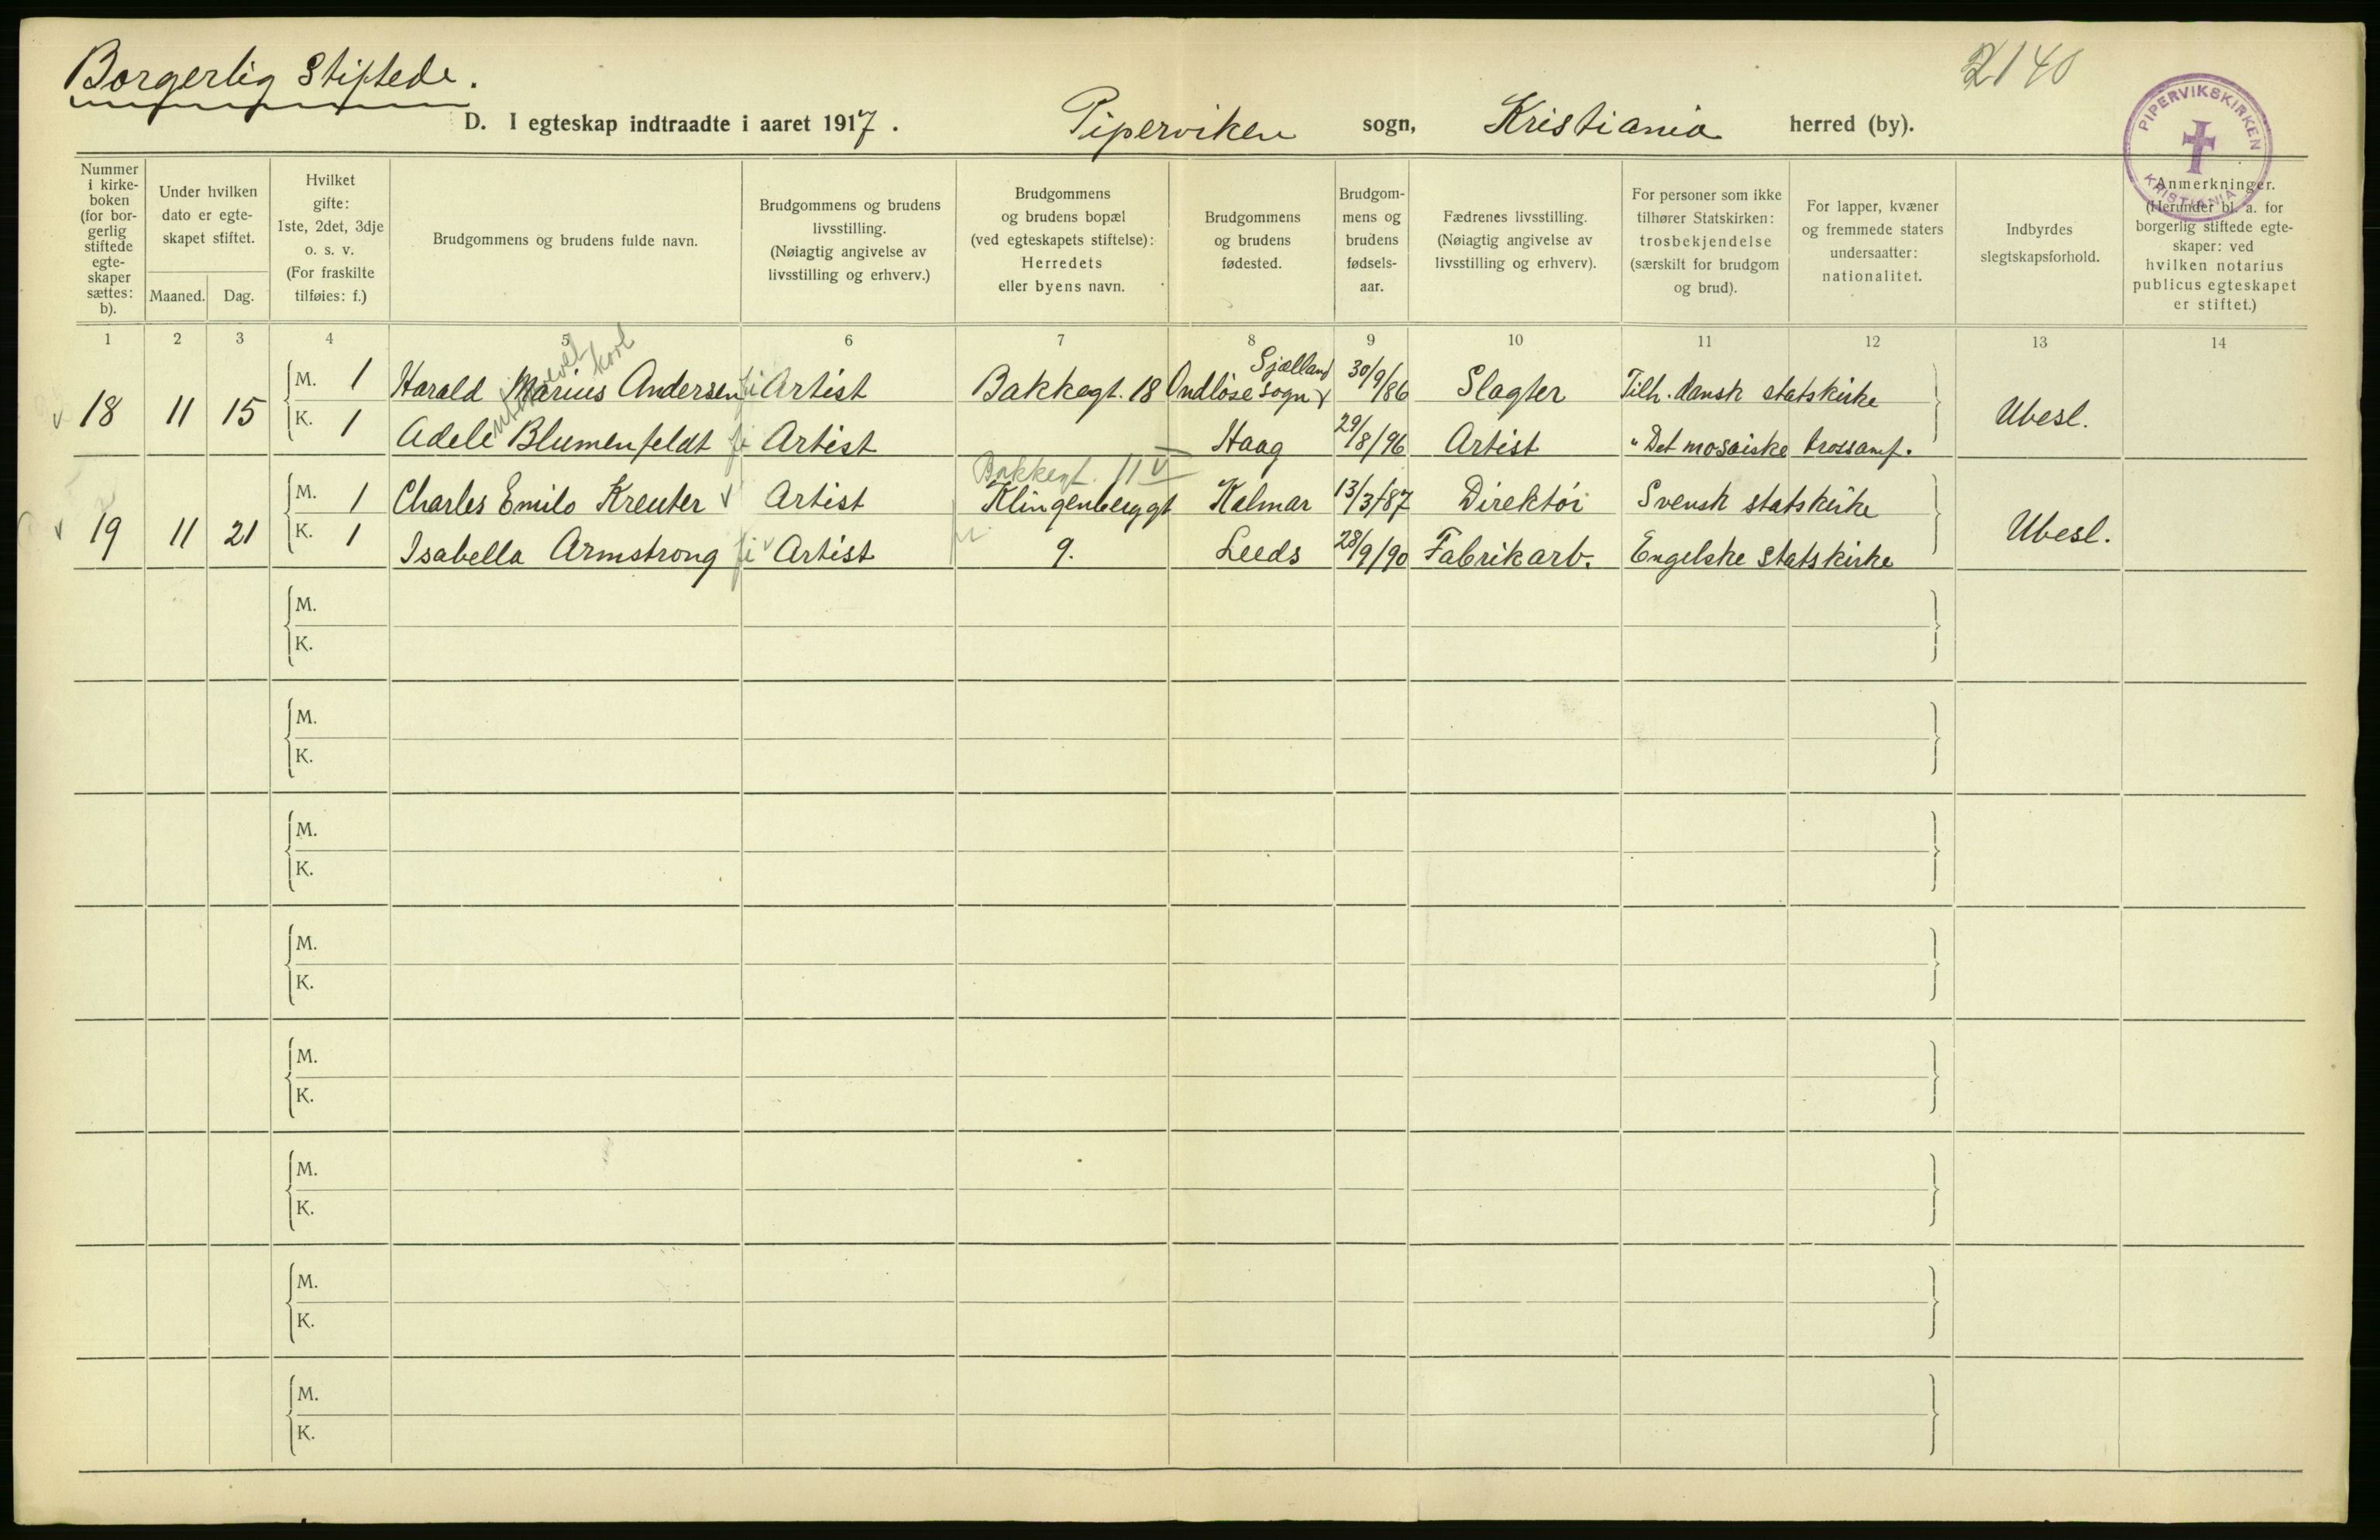 Borgerlig Stiftede.
2140
D. I egteskap indtraadte i aaret 1917. Piperviken sogn, Kristiania herred (by).
PIPERVIKSKIRKEN
KRISTIANIA
Nummer i kirke-boken (for bor-gerlig stiftede egte-skaper sættes: b).
Under hvilken dato er egte-skapet stiftet.
Maaned. Dag.
Hvilket gifte: 1ste, 2det, 3dje o. s. v. (For fraskilte tilføies: f.)
Brudgommens og brudens fulde navn.
Brudgommens og brudens livsstilling. (Nøiagtig angivelse av livsstilling og erhverv.)
Brudgommens og brudens bopæl (ved egteskapets stiftelse): Herredets eller byens navn.
Brudgommens og brudens fødested.
Brudgom-mens og brudens fødsels-aar.
Fædrenes livsstilling. (Nøiagtig angivelse av livsstilling og erhverv).
For personer som ikke tilhører Statskirken: trosbekjendelse (særskilt for brudgom og brud).
For lapper, kvæner og fremmede staters undersaatter: nationalitet.
Indbyrdes slegtskapsforhold.
Anmerkninger. (Herunder bl. a. for borgerlig stiftede egte-skaper: ved hvilken notarius publicus egteskapet er stiftet.)
1 2 3 4 5 6 7 8 9 10 11 12 13 14
18 11 15 M. 1 Harald Marius Andersen Artist Bakkegt. 18 Ondløse sogn Sjælland 30/9/86 Slagter Tilh. dansk statskirke Ubesl.
K. 1 Adele Blumenfeldt Artist — Haag 29/8/96 Artist " Det mosaiske trossamf.
Bakkegt. 11
19 11 21 M. 1 Charles Emilo Kreuter Artist Klingenberggt 9. Kalmar 13/3/87 Direktör Svensk statskirke Ubesl.
K. 1 Isabella Armstrong Artist Leeds 28/9/90 Fabrikarb. Engelske statskirke
M.
K.
M.
K.
M.
K.
M.
K.
M.
K.
M.
K.
M.
K.
M.
K.